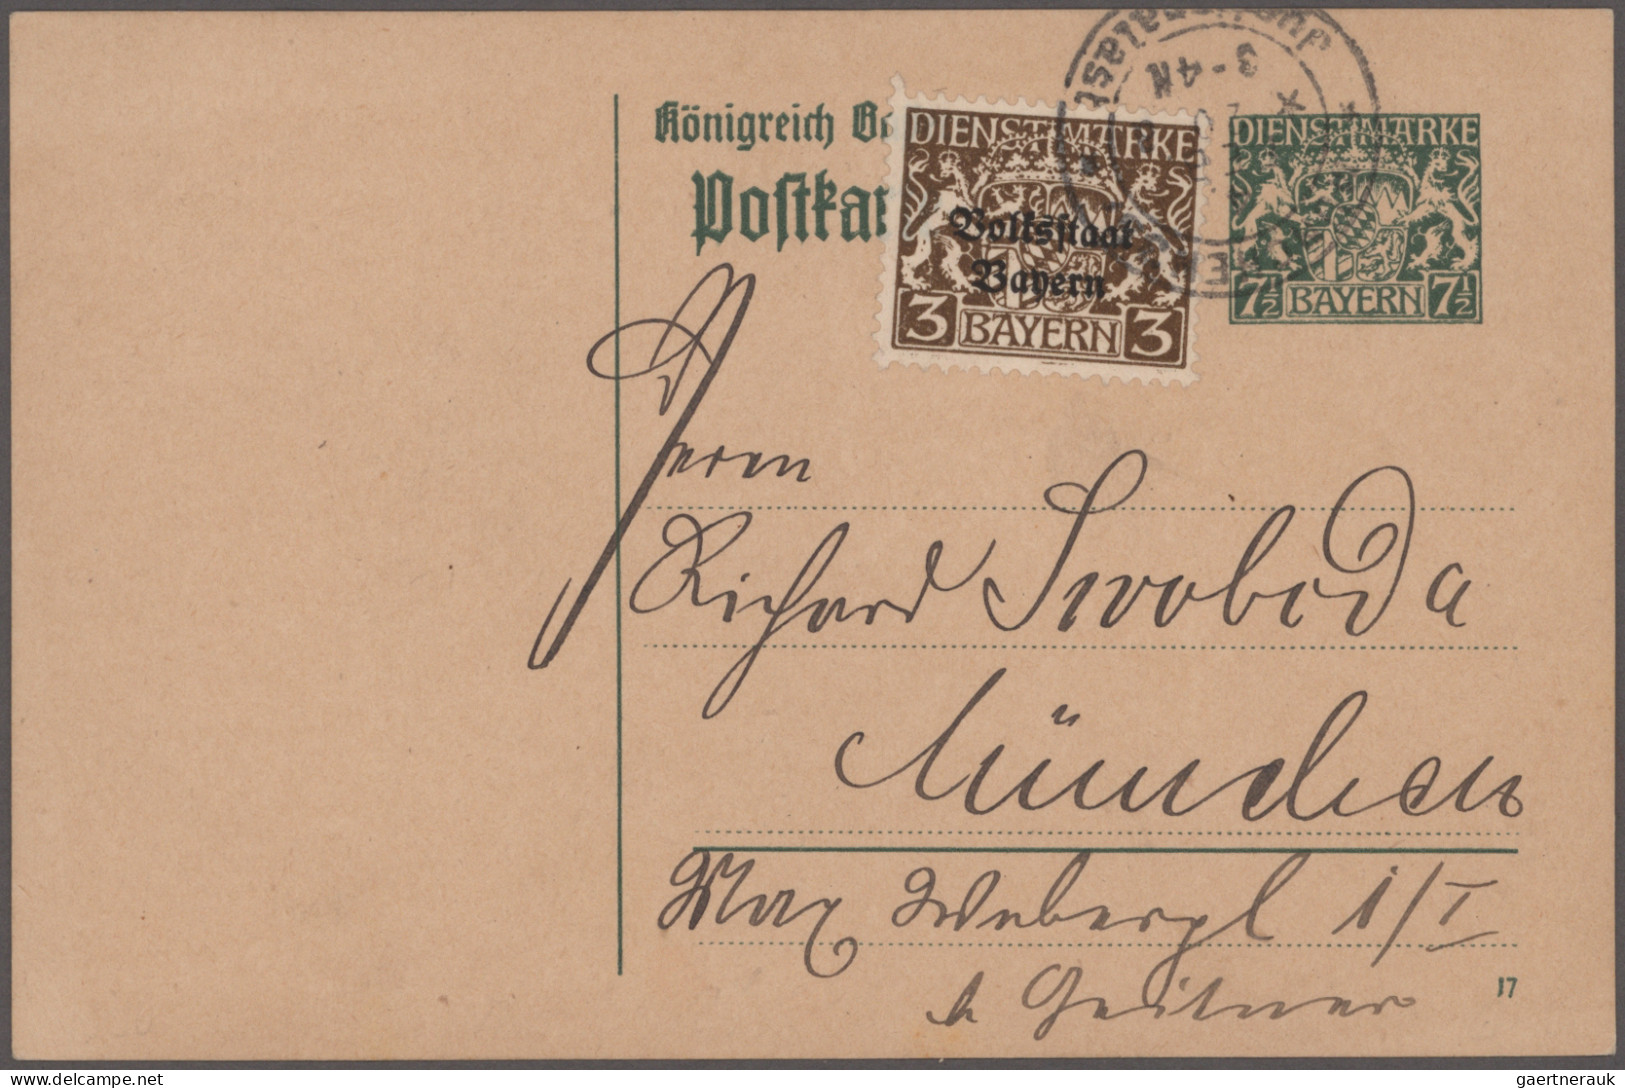 Königreich
Postkar
DIENSTMARKE
Volksstaat
Bayern
3 BAYERN 3
3-4 N
DIENSTMARKE
7½ BAYERN 7½
Herrn
Richard Swoboda
München
Max Weber
i/I
17
gaertnerauk